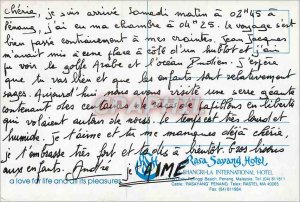 Chérie, je suis arrivé Samedi matin à 02h45 à
Penang, j'ai eu ma chambre à 04h25. Le voyage s'est
bien passé contrairement à mes craintes, Jean Jacques
m'avait mis à une place à côté d'un hublot et j'ai
pu voir le golfe Arabe et l'océan Indien. J'espère
que tu vas bien et que les enfants sont relativement
sages. Aujourd'hui nous avons visité une serre géante
contenant des centaines de papillons en liberté
qui volaient autour de nous. le temps est très lourd et
humide. je t'aime et tu me manques déjà chérie.
je t'embrasse très fort et te dis à bientôt. Gros bisous
aux enfants. André je t'AIME
a love for life and all its pleasures
Rasa Sayang Hotel
SHANGRI-LA INTERNATIONAL HOTEL
Batu Feringgi Beach, Penang, Malaysia. Tel (04) 811811
Cable: "RASAYANG" PENANG Telex: RASTEL MA 40065
Fax: (04) 811984